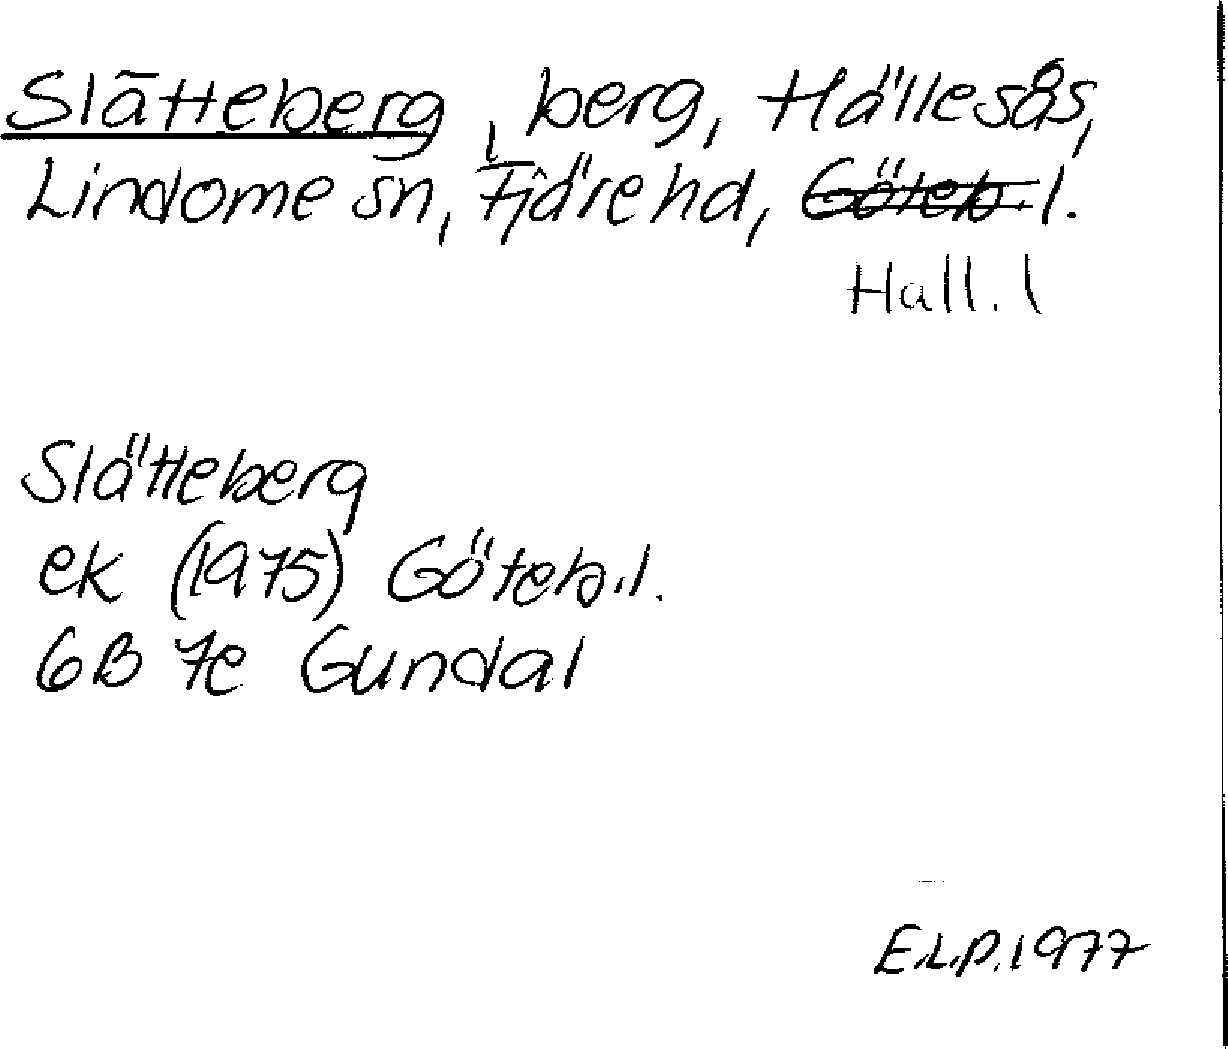 Slätteberg, berg, Hällesås,
Lindome sn, Fjäre hd, Göteb. l.
Hall. l
Slätteberg
ek (1975) Göteb. l.
6B 7e Gundal
E.L.P. 1977